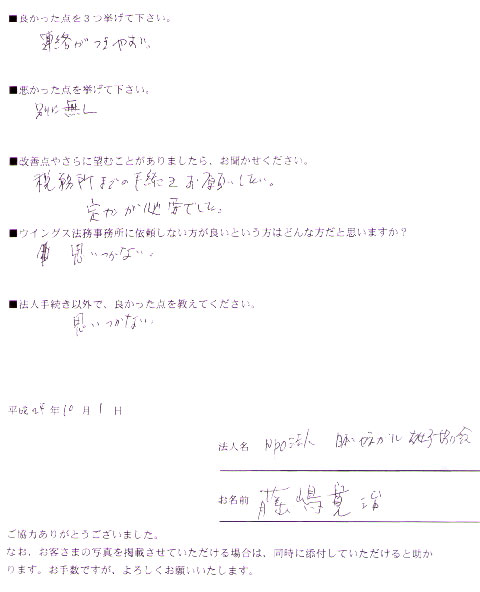 ■良かった点を３つ挙げて下さい。
連絡がつきやすい。
■悪かった点を挙げて下さい。
別に無し
■改善点やさらに望むことがありましたら、お聞かせください。
税務所までの手続をお願いしたい。
でした。
■ウイングス法務事務所に依頼しない方が良いという方はどんな方だと思いますか？
思いつかない。
■法人手続き以外で、良かった点を教えてください。
思いつかない。
平成24年10月1日
法人名 NPO法人 協会
お名前 藤嶋寛治
ご協力ありがとうございました。
なお、お客さまの写真を掲載させていただける場合は、同時に添付していただけると助か
ります。お手数ですが、よろしくお願いいたします。